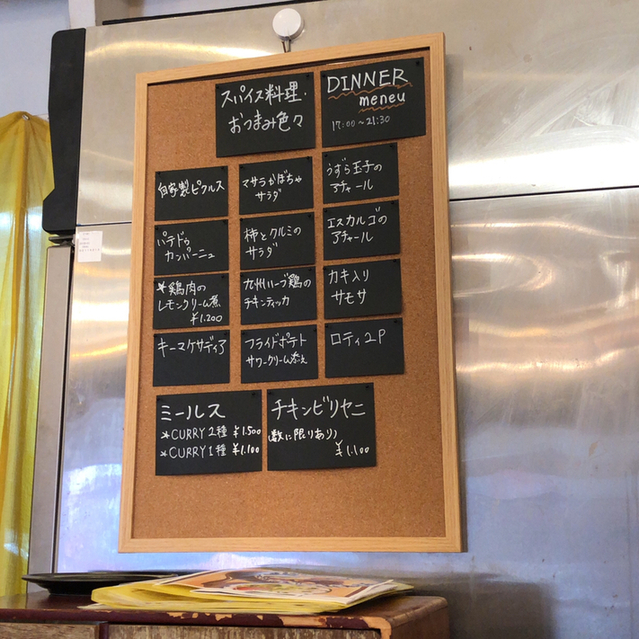 スパイス料理・
おつまみ色々
DINNER
meneu
17:00〜21:30
自家製ピクルス
マサラかぼちゃ
サラダ
うずら玉子の
アチャール
パテドゥ
カンパーニュ
柿とクルミの
サラダ
エスカルゴの
アチャール
*鶏肉の
レモンクリーム煮
¥1.200
九州ハーブ鶏の
チキンティッカ
カキ入り
サモサ
キーマケサディア
フライドポテト
サワークリーム添え
ロティ2P
ミールス
*CURRY2種 ¥1.500
*CURRY1種 ¥1.100
チキンビリヤニ
(数に限りあり)
¥1.100